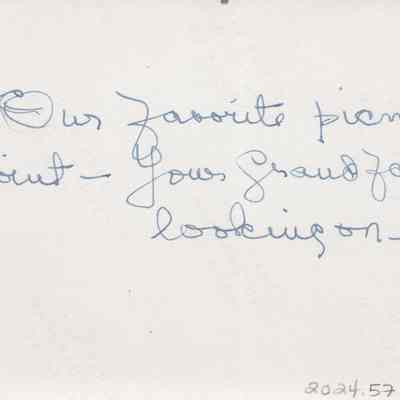 Our favorite picn
oint — Your Grandfa
looking on —
2024.57